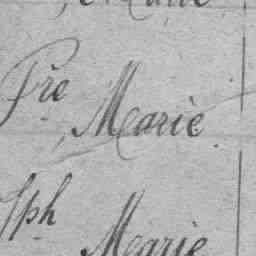 Marie
Pre Marie
Jph Marie